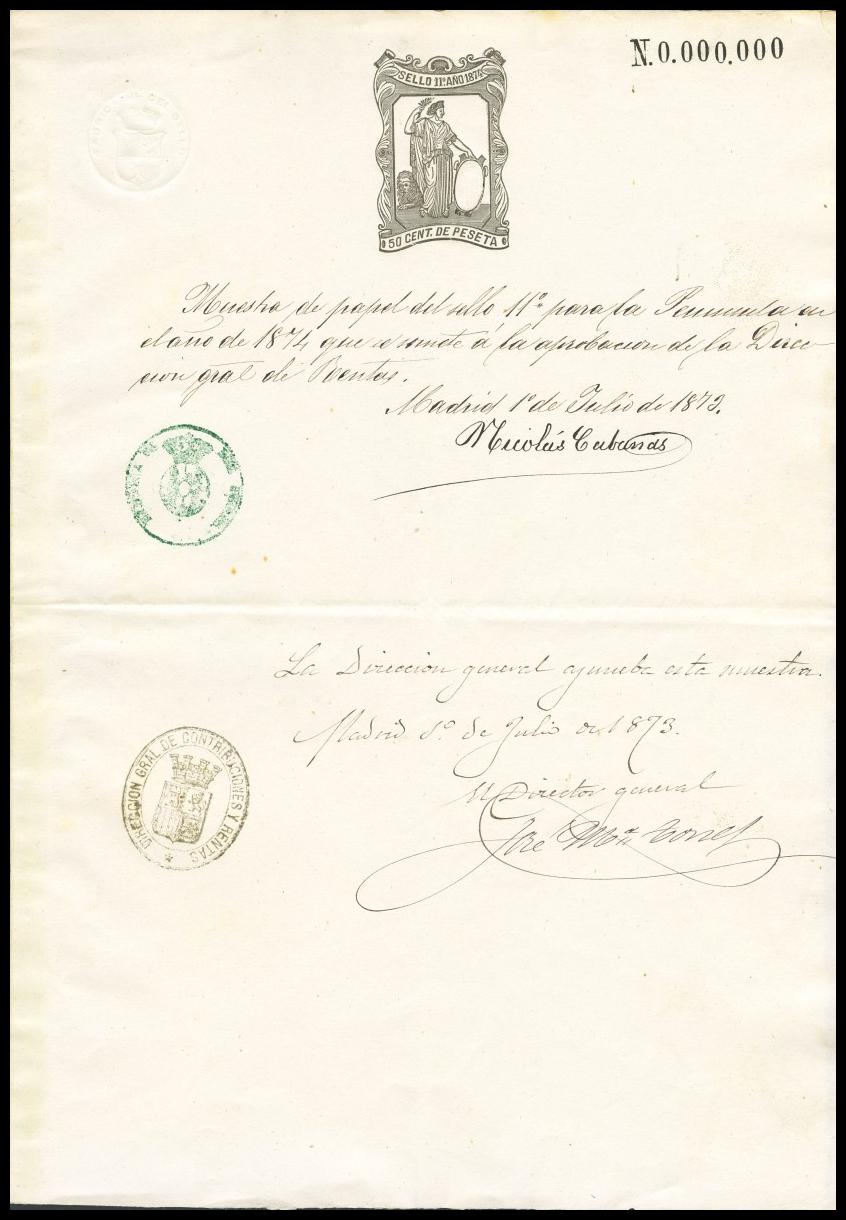 N.0.000.000
SELLO 11º AÑO 1874
50 CENT. DE PESETA
Muestra de papel del sello 11º para la Peninsula en
el año de 1874, que se remite á la aprobacion de la Direc-
cion gral de Rentas.
Madrid 1º de Julio de 1873.
Nicolás Cabañas
La Direccion general aprueba esta muestra.
Madrid 1º de Julio de 1873.
El Director general
José Mª
DIRECCION GRAL DE CONTRIBUCIONES Y RENTAS